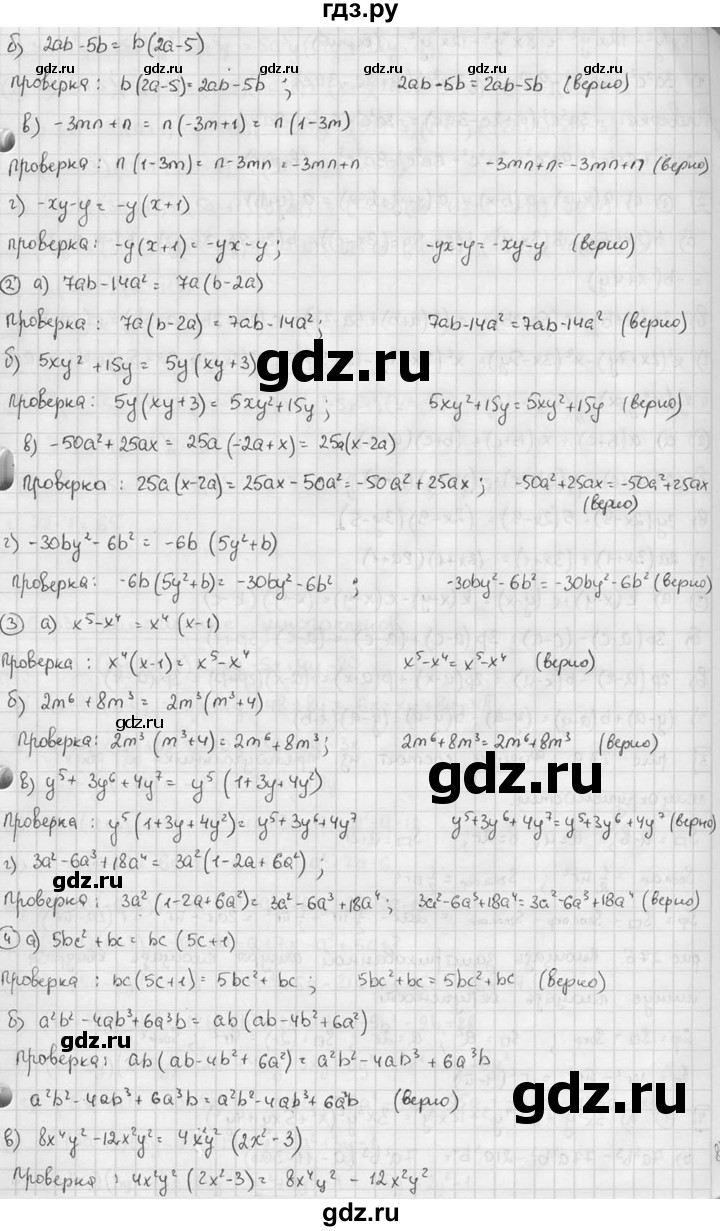 гдз.ру
б) 2ab - 5b = b(2a-5)
gdz.ru gdz.ru gdz.ru gdz.ru
Проверка: b(2a-5) = 2ab - 5b ; 2ab - 5b = 2ab - 5b (верно)
в) -3mn + n = n(-3m+1) = n(1-3m)
Проверка: n(1-3m) = n - 3mn = -3mn + n -3mn + n = -3mn + n (верно)
г) -xy - y = -y(x+1)
gdz.ru gdz.ru gdz.ru gdz.ru
проверка: -y(x+1) = -yx - y; -yx - y = -xy - y (верно)
② а) 7ab - 14a² = 7a(b-2a)
Проверка: 7a(b-2a) = 7ab - 14a²; 7ab - 14a² = 7ab - 14a² (верно)
gdz.ru
б) 5xy² + 15y = 5y(xy+3)
gdz.ru gdz.ru
Проверка: 5y(xy+3) = 5xy² + 15y; 5xy² + 15y = 5xy² + 15y (верно)
в) -50a² + 25ax = 25a(-2a+x) = 25a(x-2a)
Проверка: 25a(x-2a) = 25ax - 50a² = -50a² + 25ax ; -50a² + 25ax = -50a² + 25ax
(верно)
gdz.ru gdz.ru gdz.ru gdz.ru
г) -30by² - 6b² = -6b (5y²+b)
Проверка: -6b(5y²+b) = -30by² - 6b² ; -30by² - 6b² = -30by² - 6b² (верно)
③ а) x⁵ - x⁴ = x⁴(x-1)
Проверка: x⁴(x-1) = x⁵ - x⁴ x⁵ - x⁴ = x⁵ - x⁴ (верно)
gdz.ru gdz.ru gdz.ru
б) 2m⁶ + 8m³ = 2m³(m³+4)
gdz.ru
Проверка: 2m³(m³+4) = 2m⁶ + 8m³; 2m⁶ + 8m³ = 2m⁶ + 8m³ (верно)
gdz.ru
в) y⁵ + 3y⁶ + 4y⁷ = y⁵ (1+3y+4y²)
Проверка: y⁵(1+3y+4y²) = y⁵ + 3y⁶ + 4y⁷ y⁵ + 3y⁶ + 4y⁷ = y⁵ + 3y⁶ + 4y⁷ (верно)
г) 3a² - 6a³ + 18a⁴ = 3a²(1-2a+6a²) ;
gdz.ru gdz.ru gdz.ru gdz.ru
Проверка: 3a²(1-2a+6a²) = 3a² - 6a³ + 18a⁴; 3a² - 6a³ + 18a⁴ = 3a² - 6a³ + 18a⁴ (верно)
④ а) 5bc² + bc = bc (5c+1)
Проверка: bc(5c+1) = 5bc² + bc ; 5bc² + bc = 5bc² + bc (верно)
б) a²b² - 4ab³ + 6a³b = ab(ab-4b²+6a²)
gdz.ru gdz.ru gdz.ru
Проверка: ab(ab-4b²+6a²) = a²b² - 4ab³ + 6a³b
gdz.ru
a²b² - 4ab³ + 6a³b = a²b² - 4ab³ + 6a³b (верно)
в) 8x⁴y² - 12x²y² = 4x²y² (2x²-3)
gdz.ru gdz.ru gdz.ru gdz.ru
Проверка: 4x²y² (2x²-3) = 8x⁴y² - 12x²y²
gdz.ru